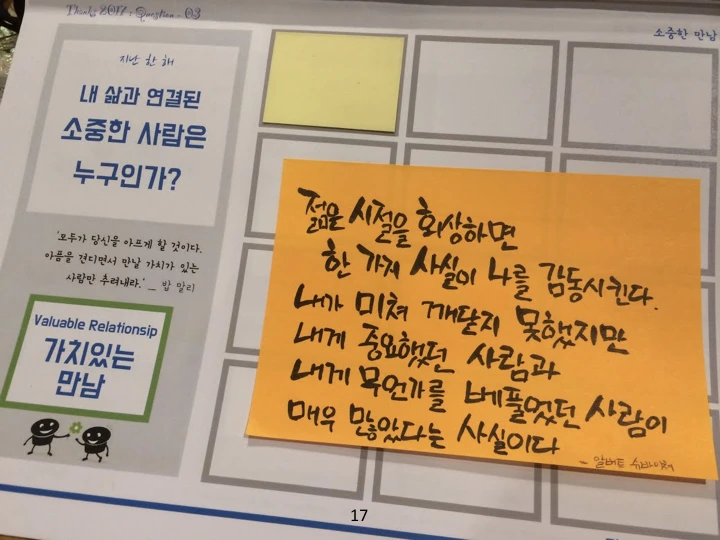 Thanks 2017 : Question - 03
소중한 만남
지난 한 해
내 삶과 연결된
소중한 사람은
누구인가?
'모두가 당신을 아프게 할 것이다.
아픔을 견디면서 만날 가치가 있는
사람만 추려내라.' _ 밥 말리
Valuable Relationsip
가치있는
만남
젊을 시절을 회상하면
한 가지 사실이 나를 감동시킨다.
내가 미쳐 깨닫지 못했지만
내게 중요했던 사람과
내게 무언가를 베풀었던 사람이
매우 많았았다는 사실이다
- 알버트 슈바이처
17